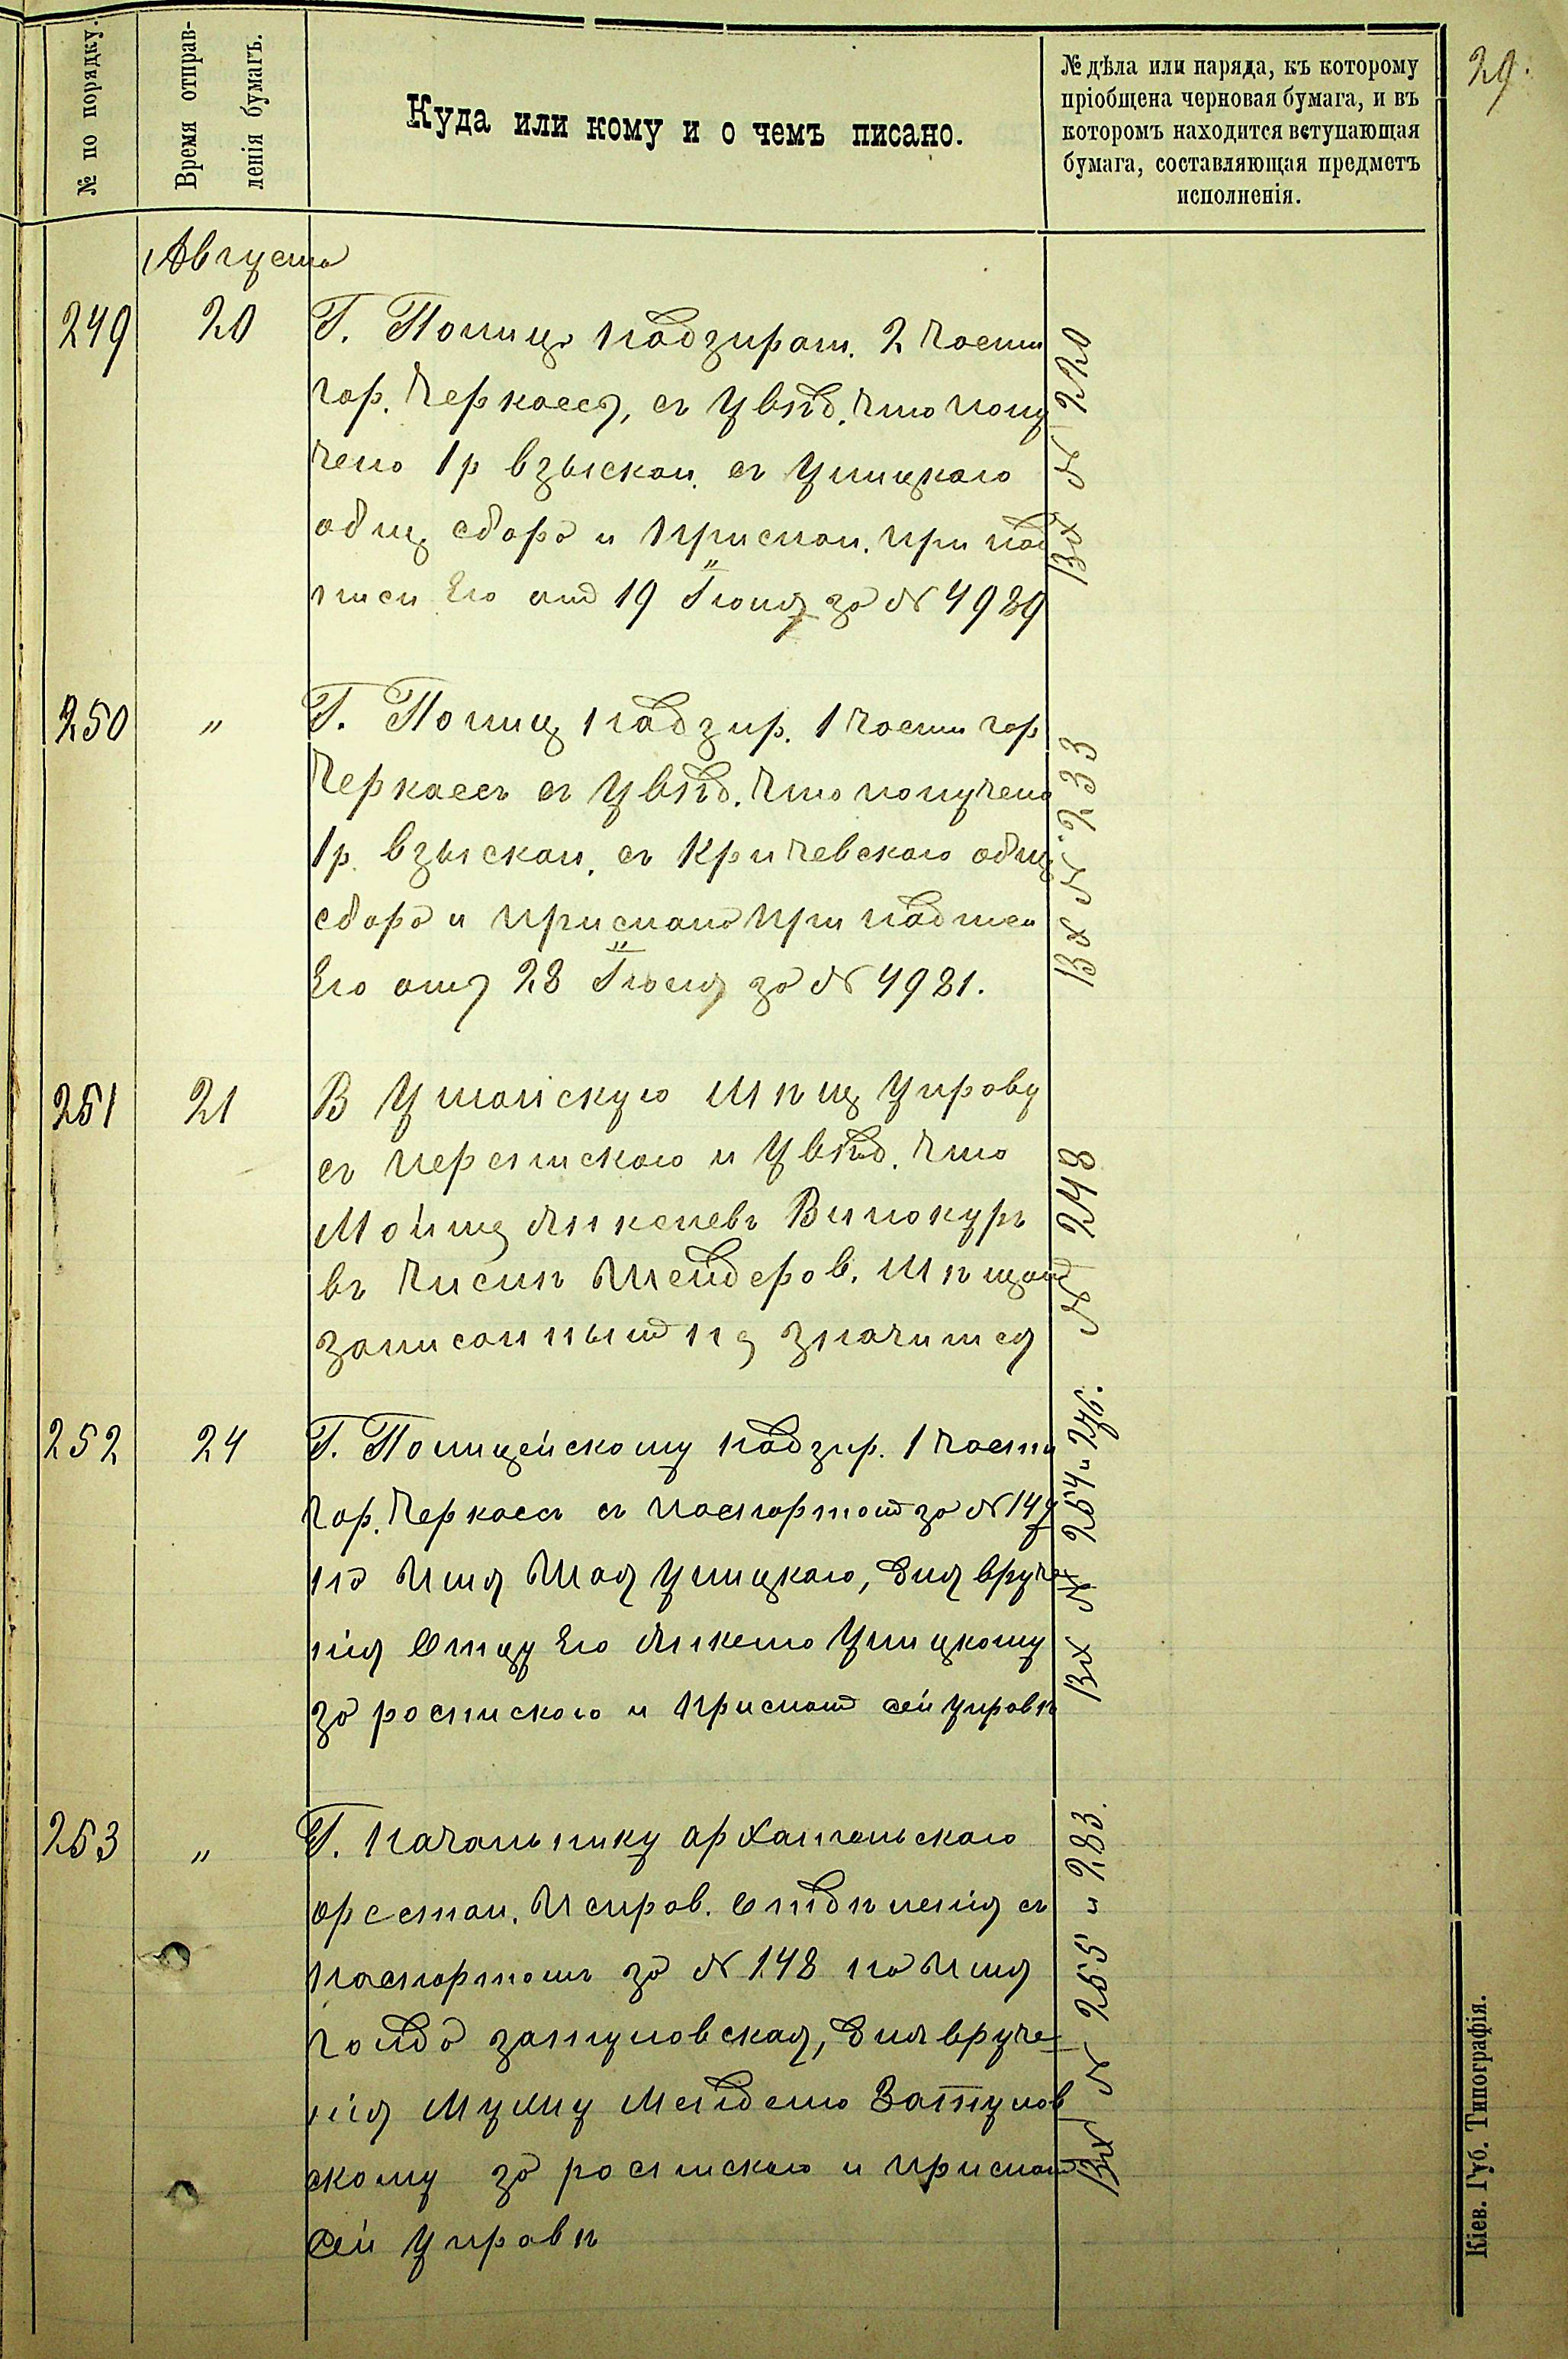 29.
№ по порядку.
Время отправ-
ленія бумагъ.
Куда или кому и о чемъ писано.
№ дѣла или наряда, къ которому
пріобщена черновая бумага, и въ
которомъ находится вступающая
бумага, составляющая предметъ
исполненія.
Августа
249 20 Г. Полиц. надзират. 2 части
гор. Черкассъ, съ увѣд. что полу
чено 1 р взыскан. съ Улицкаго
общ сбора и прислан. при над
писи его отъ 19 Іюня за № 4989
Вх № 220
250 " Г. Полиц надзир. 1 части гор
Черкассъ съ увѣд. что получено
1 р. взыскан. съ Кричевскаго общ
сбора и прислано при надписи
его отъ 28 Іюля за № 4981.
Вх № 233
251 21 В Уманскую Мѣщ Управу
съ перепискою и увѣд. что
Мойше Янкелевъ Винокуръ
въ числѣ Шендеров. мѣщан
записаннымъ не значится
№ 248
252 24 Г. Полицейскому надзир. 1 части
гор. Черкассъ съ паспортом за № 149
на имя Шая Улицкаго, для вруче
нія отцу его Янкелю Улицкому
за роспискою и прислат сей управѣ
Вх № 254 и 276.
253 " Г. Начальнику архангельскаго
арестан. исправ. отдѣленія съ
паспортомъ за № 148 на имя
Голда Затуловская, для вруче-
нія мужу Менделю Затулов
скому за роспискою и прислат
сей управѣ
Вх № 255 и 283.
Кіев. Губ. Типографія.